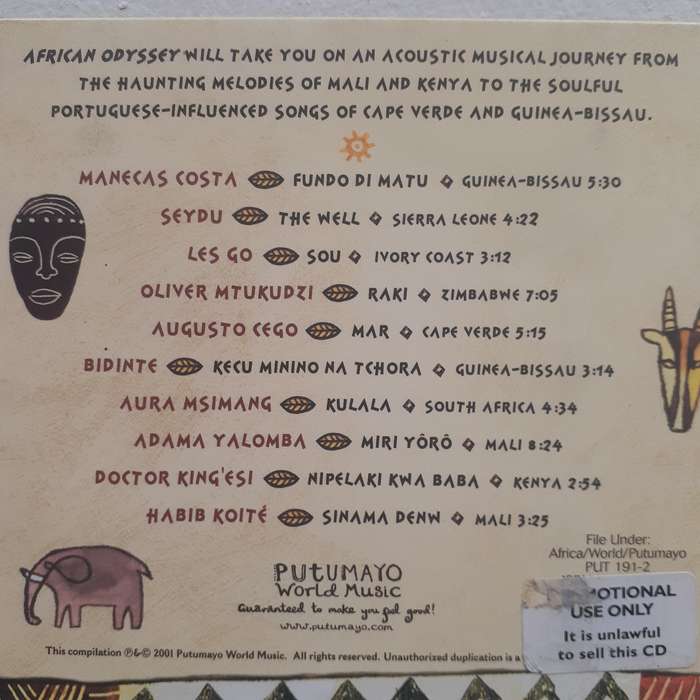 AFRICAN ODYSSEY WILL TAKE YOU ON AN ACOUSTIC MUSICAL JOURNEY FROM
THE HAUNTING MELODIES OF MALI AND KENYA TO THE SOULFUL
PORTUGUESE-INFLUENCED SONGS OF CAPE VERDE AND GUINEA-BISSAU.
MANECAS COSTA FUNDO DI MATU GUINEA-BISSAU 5:30
SEYDU THE WELL SIERRA LEONE 4:22
LES GO SOU IVORY COAST 3:12
OLIVER MTUKUDZI RAKI ZIMBABWE 7:05
AUGUSTO CEGO MAR CAPE VERDE 5:15
BIDINTE KECU MININO NA TCHORA GUINEA-BISSAU 3:14
AURA MSIMANG KULALA SOUTH AFRICA 4:34
ADAMA YALOMBA MIRI YÔRÔ MALI 8:24
DOCTOR KING'ESI NIPELAKI KWA BABA KENYA 2:54
HABIB KOITÉ SINAMA DENW MALI 3:25
File Under:
Africa/World/Putumayo
PUT 191-2
PUTUMAYO
World Music
Guaranteed to make you feel good!
www.putumayo.com
MOTIONAL
USE ONLY
It is unlawful
to sell this CD
This compilation ℗&© 2001 Putumayo World Music. All rights reserved. Unauthorized duplication is a